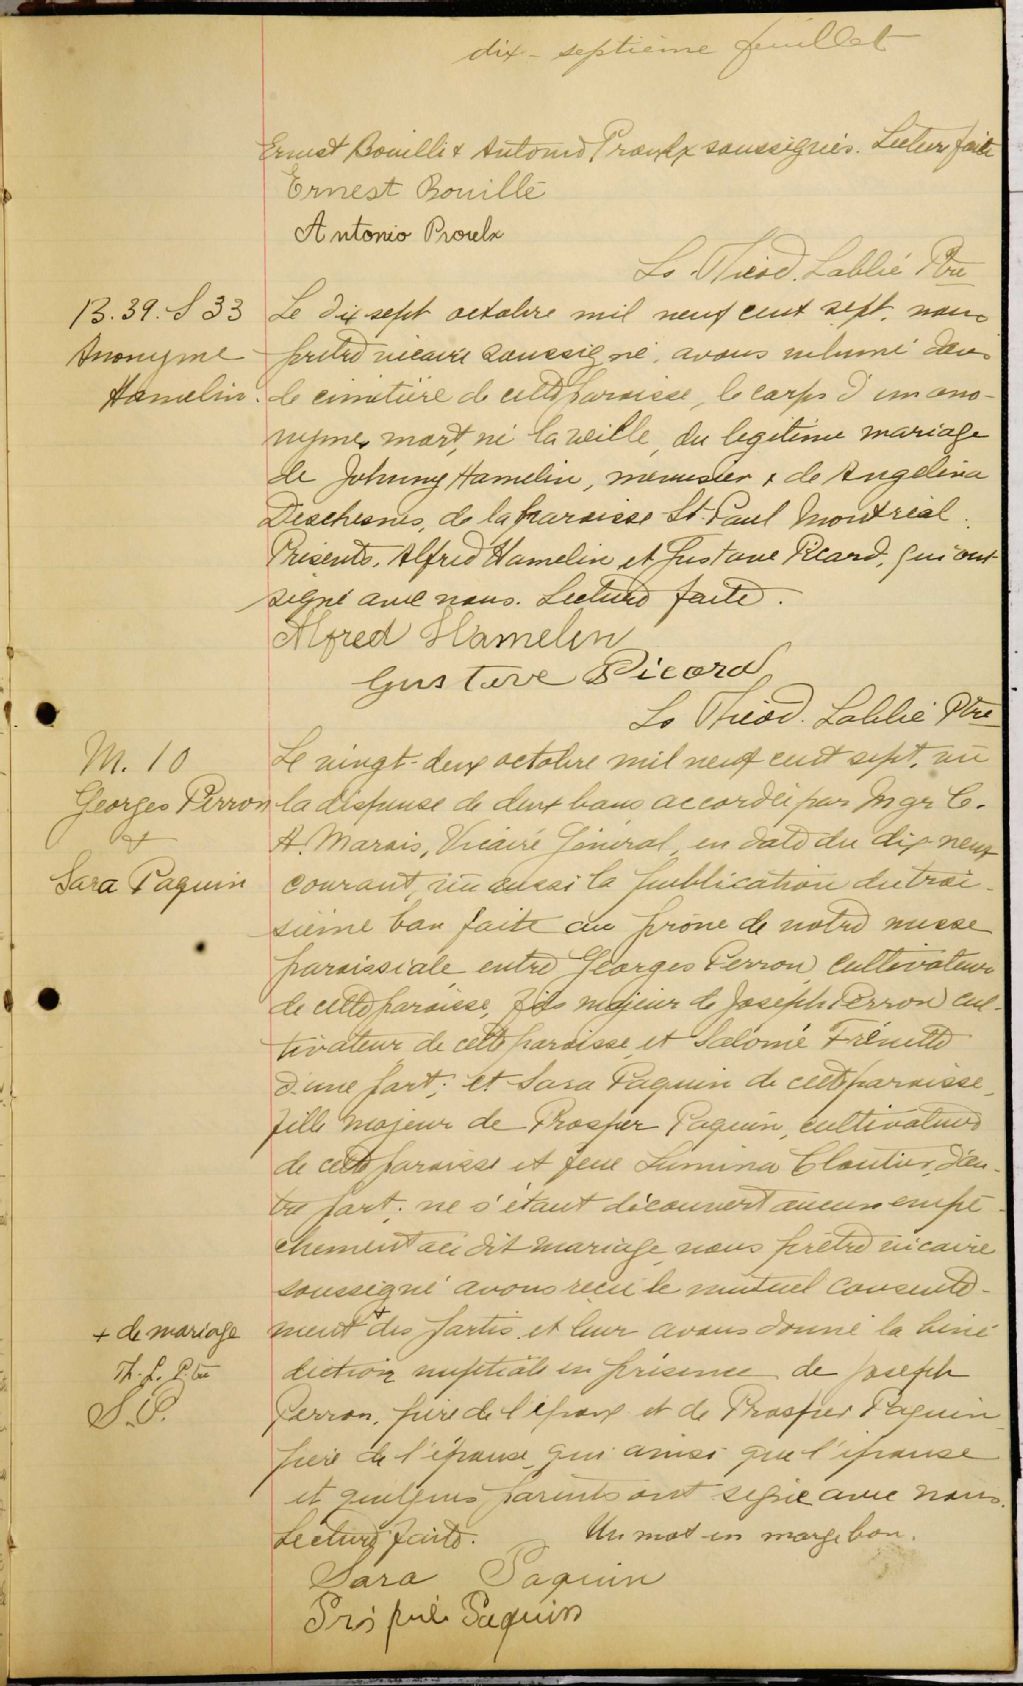 dix-septième feuillet
Ernest Bouillé & Antonio Proulx soussignés. Lecture faite
Ernest Bouillé
Antonio Proulx
Ls. Théod. Labbé Ptre
B.39. S 33
Anonyme
Hamelin.
Le dix sept octobre mil neuf cent sept. nous
prêtre vicaire soussigné, avons inhumé dans
le cimetière de cette paroisse, le corps d'un ano-
nyme, mort, né la veille, du legitime mariage
de Johnny Hamelin, menusier & de Angelina
Deschesnes, de la paroisse St-Paul Montréal.
Présents. Alfred Hamelin et Gustave Picard, qui ont
signé avec nous. Lecture faite.
Alfred Hamelin
Gustave Picard
Ls Théod. Labbé Ptre
M. 10
Georges Perron
&
Sara Paquin
Le vingt-deux octobre mil neuf cent sept, vu
la dispense de deux bans accordée par Mgr C.
A. Marois, Vicaire Général, en date du dix-neuf
courant, vu aussi la publication du troi-
sième ban faite au prône de notre messe
paroissiale entre Georges Perron, cultivateur
de cette paroisse, fils majeur de Joseph Perron cul-
tivateur de cette paroisse et Salomé Frénette
d'une part; et Sara Paquin de cette paroisse,
fille majeur de Prosper Paquin, cultivateur
de cette paroisse et feue Lumina Cloutier, d'au-
tre part; ne s'étant découvert aucun empê-
chement au dit mariage, nous prêtre vicaire
soussigné avons reçu le mutuel consente-
ment + des partis et leur avons donné la béné
diction nuptiale en présence de Joseph
Perron, père de l'époux et de Prosper Paquin
père de l'épouse, qui ainsi que l'épouse
et quelques parents ont signé avec nous.
Lecture faite. Un mot en marge bon.
+ de mariage
Th. L. Ptre
S.P.
Sara Paquin
Paquin